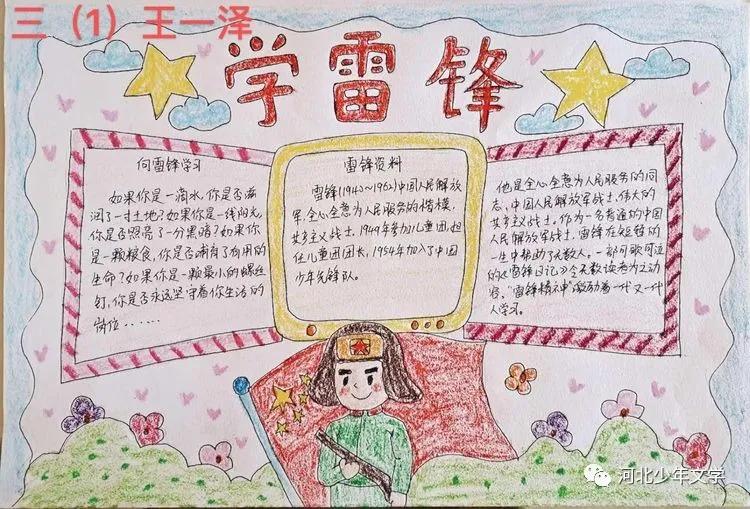 三（1）王一泽
学雷锋
向雷锋学习
如果你是一滴水，你是否滋
润了一寸土地？如果你是一线阳光，
你是否照亮了一分黑暗？如果你
是一颗粮食，你是否哺育了有用的
生命？如果你是一颗最小的螺丝
钉，你是否永远坚守着你生活的
岗位......
雷锋资料
雷锋(1940~1962)中国人民解放
军，全心全意为人民服务的楷模，
共产主义战士，1949年参加儿童团，担
任儿童团团长，1954年加入了中国
少年先锋队。
他是全心全意为人民服务的同
志，中国人民解放军战士，伟大的
共产主义战士。作为一名普通的中国
人民解放军战士，雷锋在短暂的
一生中帮助了无数人。一部可歌可泣
的《雷锋日记》令无数读者为之动
容。"雷锋精神"激励着一代又一代
人学习。
河北少年文学